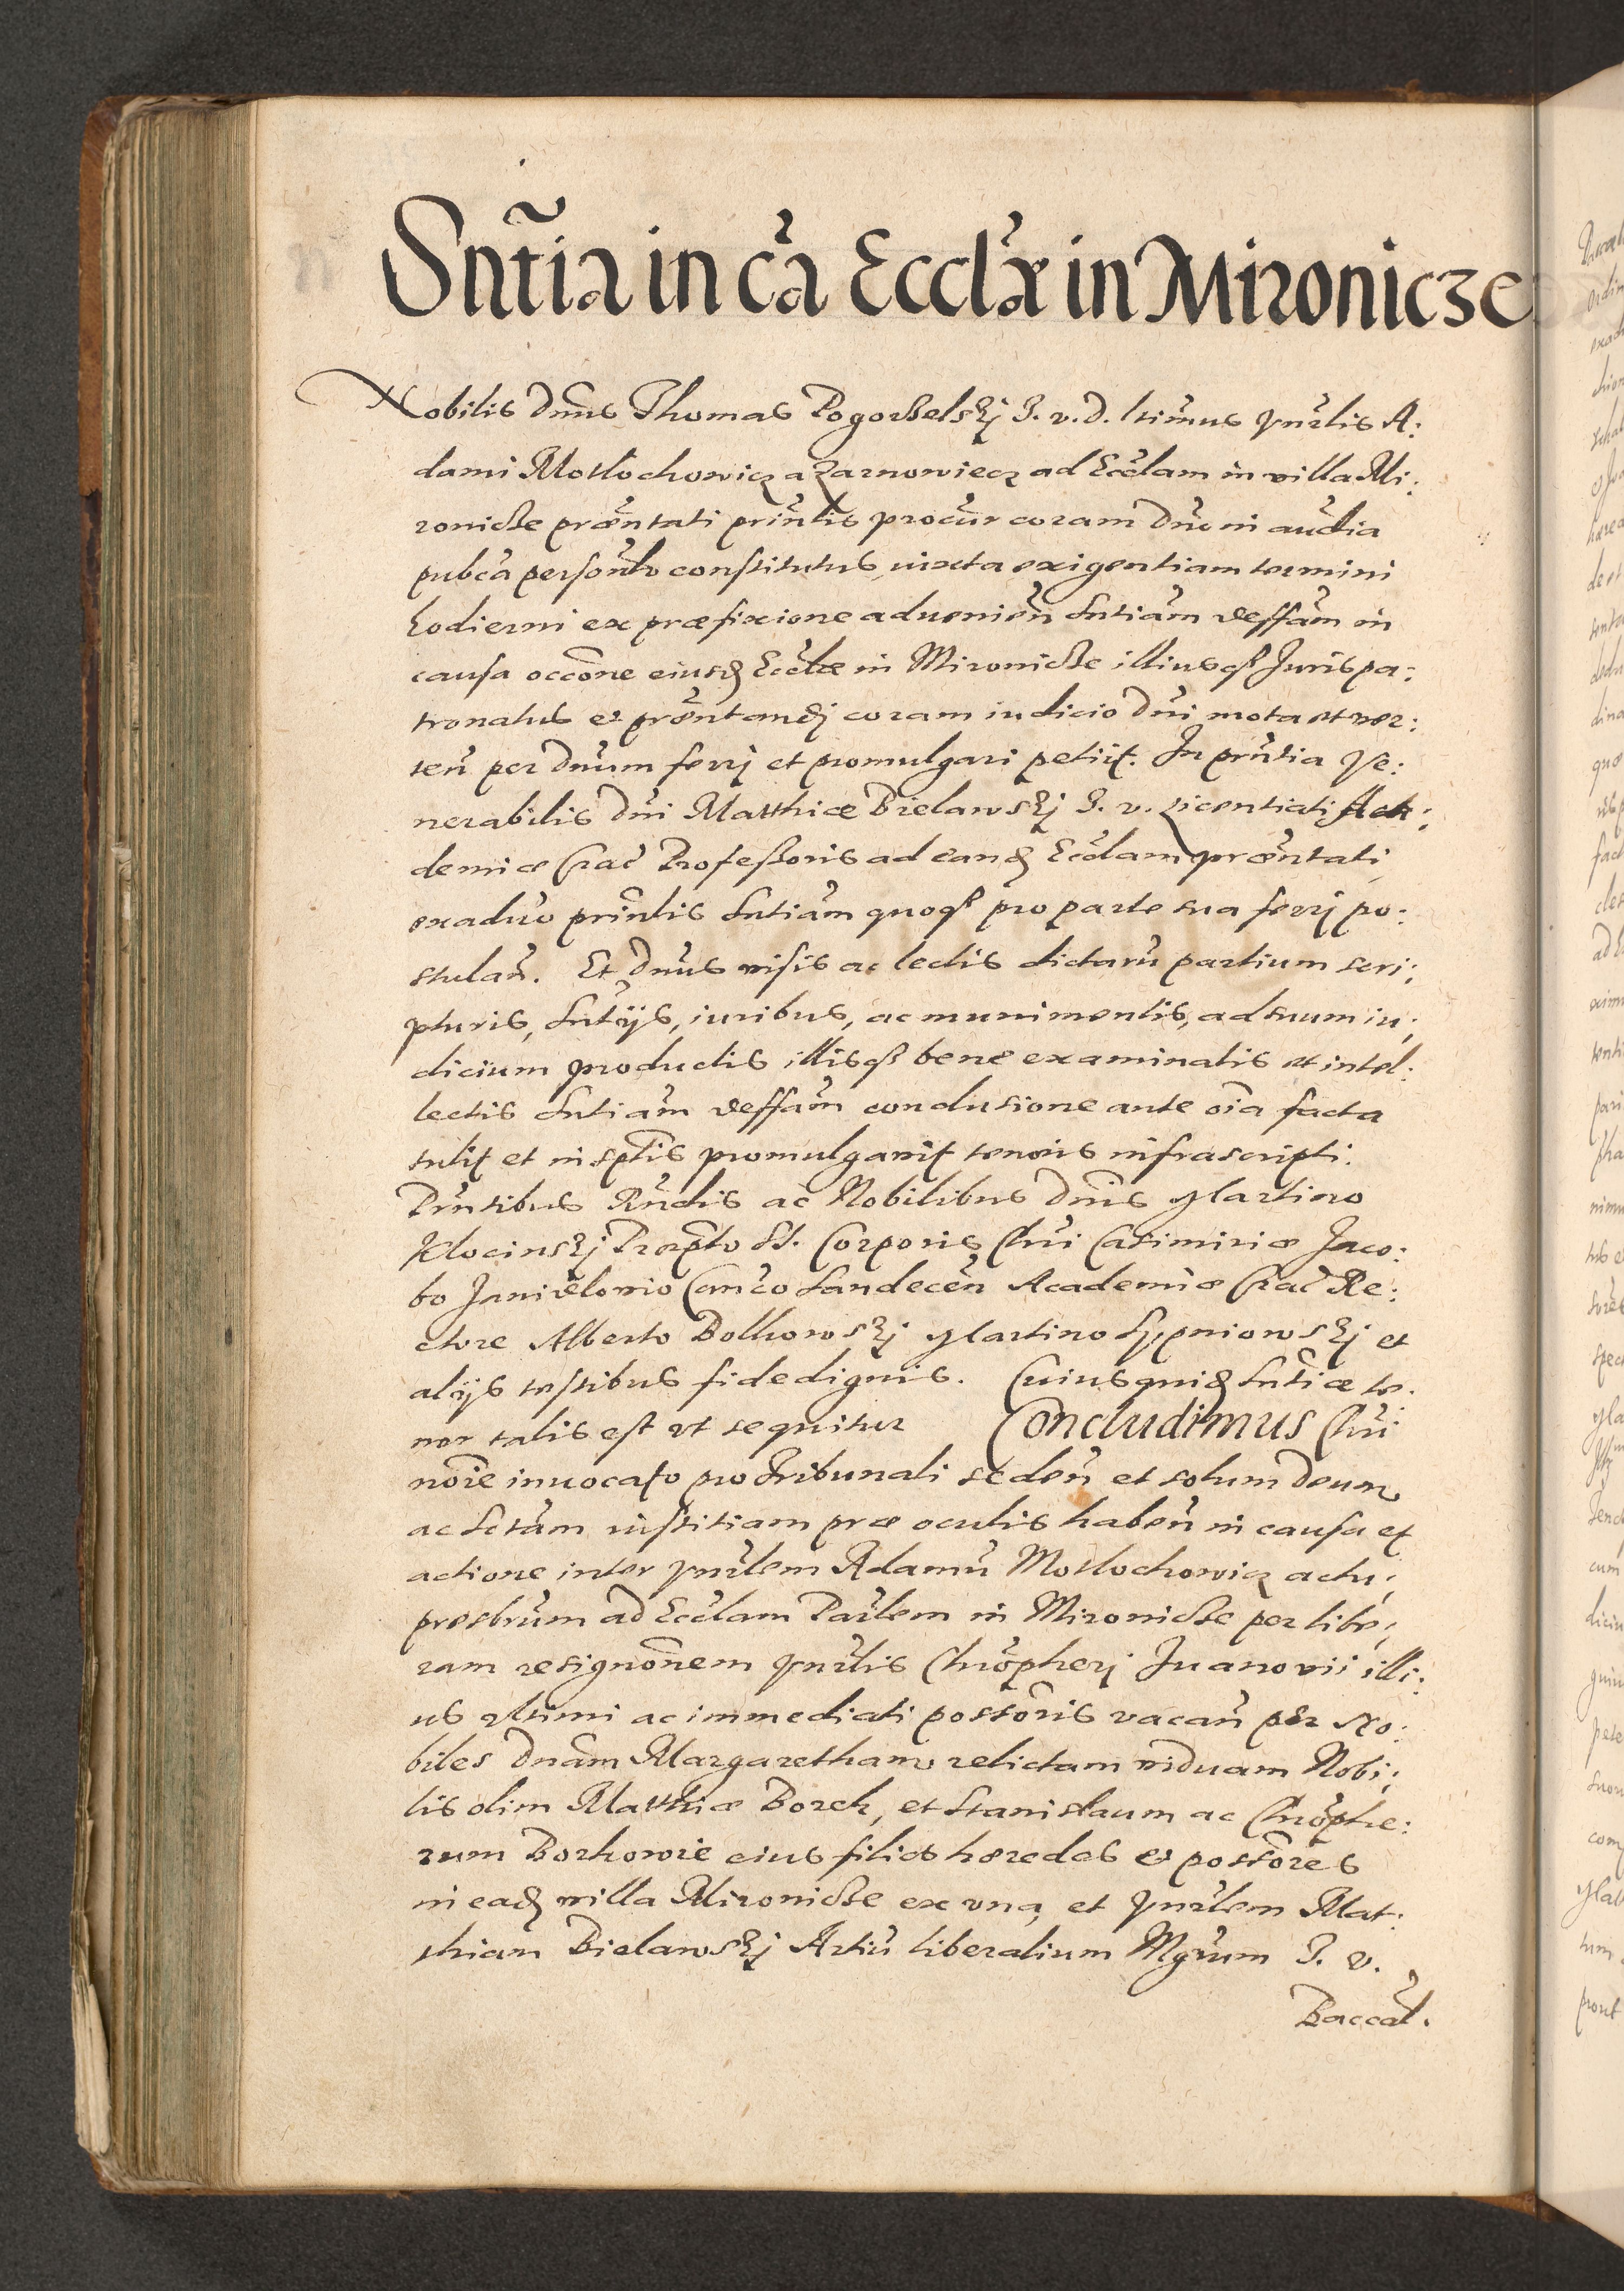 Snt̃ia in cã Eccłæ in Mironicze
Nobilis Dnũs Thomas Pogorzelskj J. v. d. ltimus Vnr̃lis A:
dami Motlochowicz a Zarnowiecz ad Eccl̃am in villa Mi:
ronicze præñtati prin̄lis procũr coram Dño in audĩa
pubc̃a personl̃r constitutus, iuxta exigentiam termini
hodierni ex præfixione aduenieñ Sntiãm deffãm in
causa occõne eiusd Eccl̃æ in Mironicze illiusq Juris pa:
tronatus et præñtandj coram iudicio Dñi mota et ver:
teñ per Dnũm ferrj et promulgari petiit. In prñtia Ve:
nerabilis Dñi Matthiæ Bielawskj J. v. Licentiati Aca:
demiæ Crac̃ Professoris ad eand Eccl̃am præñtati
ex aduo prin̄lis Sntiãm quoq pro parte sua ferrj po:
stulañ. Et Dnũs visis ac lectis dictarũ partium scri:
pturis, Sntijs, iuribus, ac munimentis, ad suum iu:
dicium productis illisq bene examinatis et intel:
lectis Sntiãm deffãm conclusione ante oĩa facta
tulit et in sp̃tis promulgauit tenoris infrascripti.
Prñtibus Rñdis ac Nobilibus Dñis Martino
Klocinskj Præp̃to SS. Corporis Chr̃i Casimiriæ Jaco:
bo Janidelowio Canc̃o Sandeceñ Academiæ Crac̃ Re:
ctore Alberto Bolkowskj Martino Sypniowskj et
alijs testibus fidedignis. Cuiusquid Sntiæ te:
nor talis est vt sequitur Concludimus Chr̃i
noĩe inuocato pro tribunali sedeñ et solum Deum
ac Sctãm iustitiam præ oculis habeñ in causa et
actione inter Vnr̃lem Adamũ Motlochowicz actu:
præsbrũm ad Eccl̃am Parl̃em in Mironicze per libe:
ram resignõnem Vnr̃lis Chrõpherj Juanowii illi:
us vltimi ac immediati possõris vacañ per No:
biles Dnãm Margaretham relictam viduam Nobi:
lis olim Matthiæ Borek, et Stanislaum ac Chrõphe:
rum Borkowie eius filios hæredes et possõres
in ead villa Mironicze ex vna, et Vnr̃lem Mat:
thiam Bielawskj Artiũ liberalium Mgr̃um J. v.
Baccal̃.